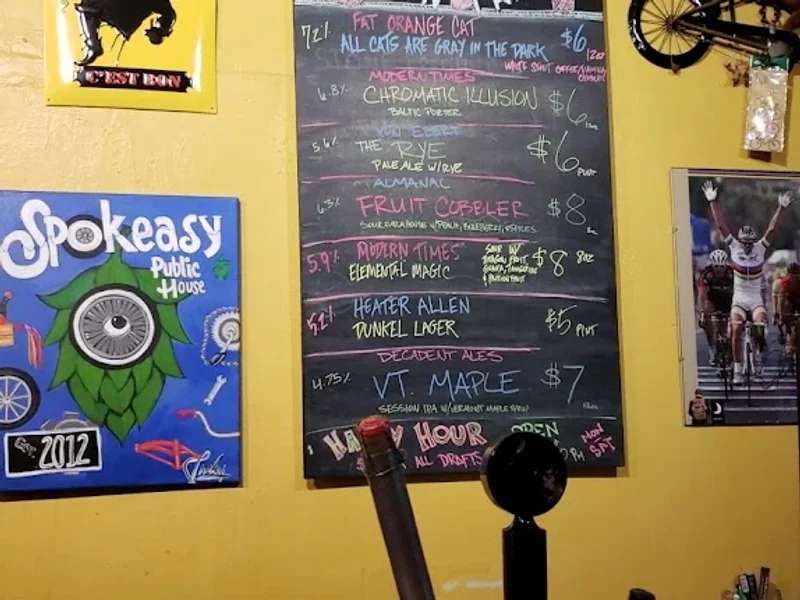 C'EST BON
Spokeasy
Public
House
EST. 2012
7.2%
FAT ORANGE CAT
ALL CATS ARE GRAY IN THE DARK
$6
12oz
WHITE STOUT COFFEE/VANILLA
MODERN TIMES
6.8%
CHROMATIC ILLUSION
$6
BALTIC PORTER
VON EBERT
5.6%
THE RYE
$6
PINT
PALE ALE W/RYE
ALMANAC
6.3%
FRUIT COBBLER
$8
5.9%
MODERN TIMES
ELEMENTAL MAGIC
SOUR W/
DRAGON FRUIT,
GUAVA, TANGERINE
& PASSIONFRUIT
$8
8oz
5.2%
HEATER ALLEN
DUNKEL LAGER
$5
PINT
DECADENT ALES
4.75%
VT. MAPLE
$7
SESSION IPA W/VERMONT MAPLE SYRUP
HOUR
ALL DRAFTS
OPEN
PM
MON
SAT